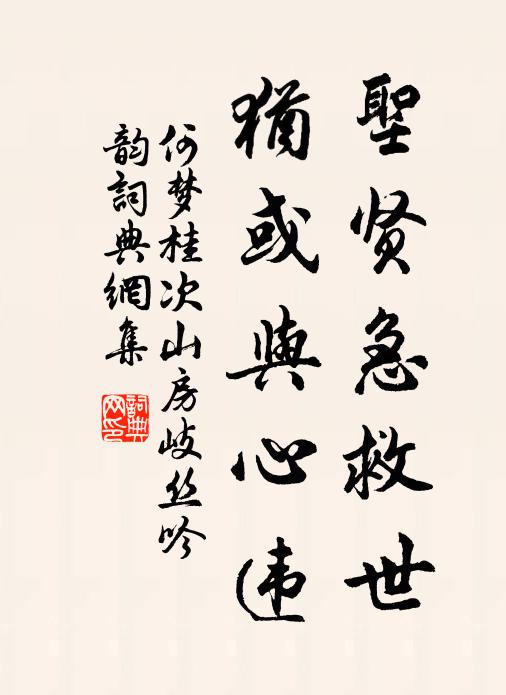 聖贤急救世
猶或與心违
何梦桂次山房岐丝吟
韵詞典網集
詞典
网印